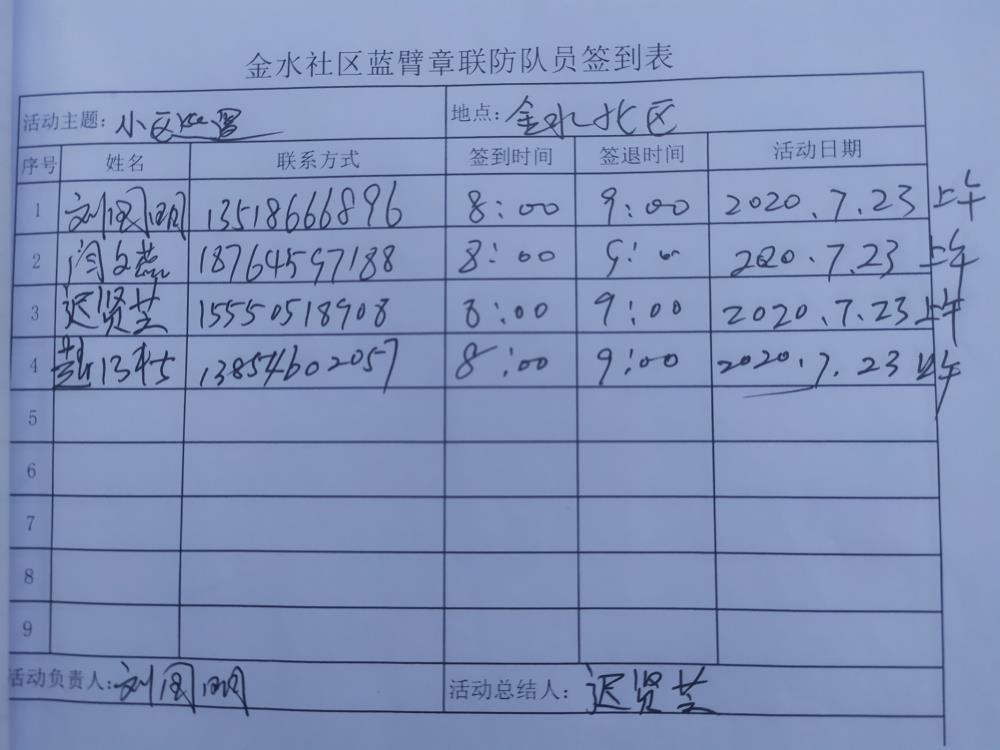 金水社区蓝臂章联防队员签到表
活动主题: 小区 地点: 金水北区
序号 姓名 联系方式 签到时间 签退时间 活动日期
1 刘国明 13518666896 8:00 9:00 2020.7.23 上午
2 闫文燕 18764597188 8:00 9:00 2020.7.23 上午
3 迟贤芝 15550518908 8:00 9:00 2020.7.23 上午
4 13854602057 8:00 9:00 2020.7.23 上午
5
6
7
8
9
活动负责人: 刘国明 活动总结人: 迟贤芝